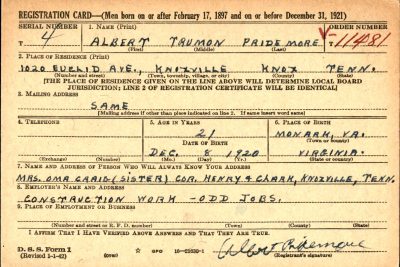 REGISTRATION CARD—(Men born on or after February 17, 1897 and on or before December 31, 1921)
SERIAL NUMBER 1. NAME (Print) ORDER NUMBER
4 ALBERT TRUMON PRIDEMORE V-11481
(First) (Middle) (Last)
2. PLACE OF RESIDENCE (Print)
1020 EUCLID AVE., KNOXVILLE KNOX TENN.
(Number and street) (Town, township, village, or city) (County) (State)
[THE PLACE OF RESIDENCE GIVEN ON THE LINE ABOVE WILL DETERMINE LOCAL BOARD
JURISDICTION; LINE 2 OF REGISTRATION CERTIFICATE WILL BE IDENTICAL]
3. MAILING ADDRESS
SAME
[Mailing address if other than place indicated on line 2. If same insert word same]
4. TELEPHONE 5. AGE IN YEARS 6. PLACE OF BIRTH
21 MONARK, VA.
DATE OF BIRTH (Town or county)
DEC. 8 1920 VIRGINIA.
(Exchange) (Number) (Mo.) (Day) (Yr.) (State or country)
7. NAME AND ADDRESS OF PERSON WHO WILL ALWAYS KNOW YOUR ADDRESS
MRS. OMA CRAIG (SISTER) COR. HENRY & CLARK, KNOXVILLE, TENN.
8. EMPLOYER'S NAME AND ADDRESS
CONSTRUCTION WORK - ODD JOBS.
9. PLACE OF EMPLOYMENT OR BUSINESS
(Number and street or R. F. D. number) (Town) (County) (State)
I AFFIRM THAT I HAVE VERIFIED ABOVE ANSWERS AND THAT THEY ARE TRUE.
D. S. S. Form 1 GPO 16—21630-1 Albert Pridemore
(Revised 1-1-42) (over) (Registrant's signature)